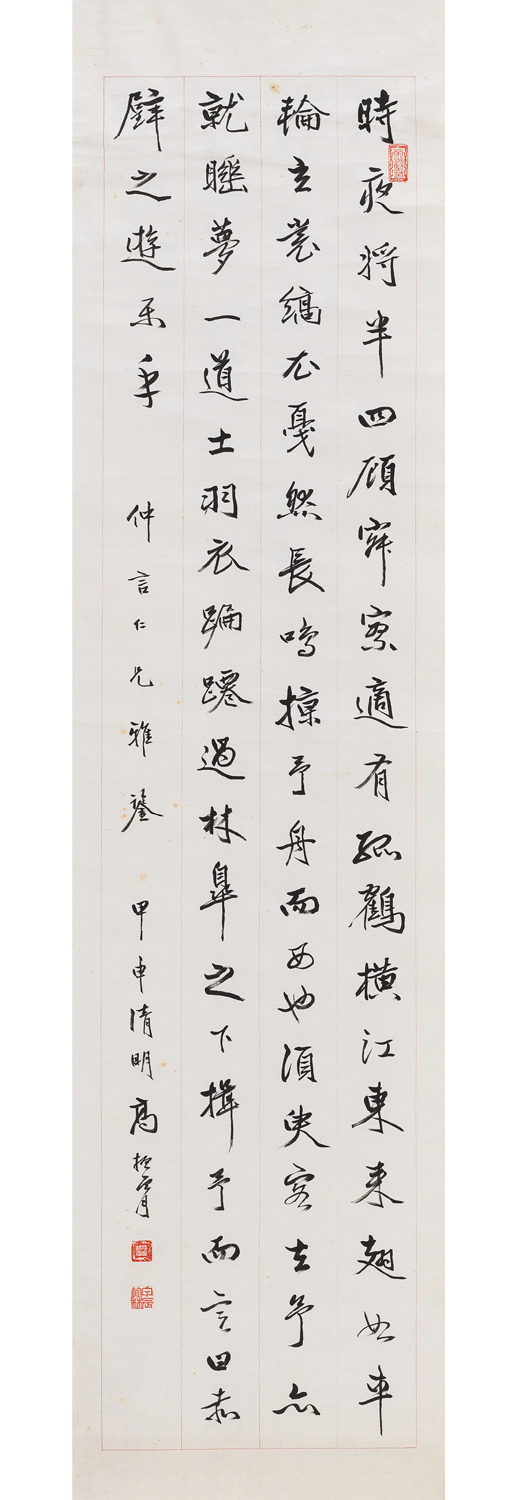 時夜將半四顧寂寥適有孤鶴橫江東來翅如車
輪玄裳縞衣戛然長鳴掠予舟而西也須臾客去予亦
就睡夢一道士羽衣蹁躚過林皐之下揖予而言曰赤
壁之遊樂乎 仲言仁兄雅鑒 甲申清明高振霄